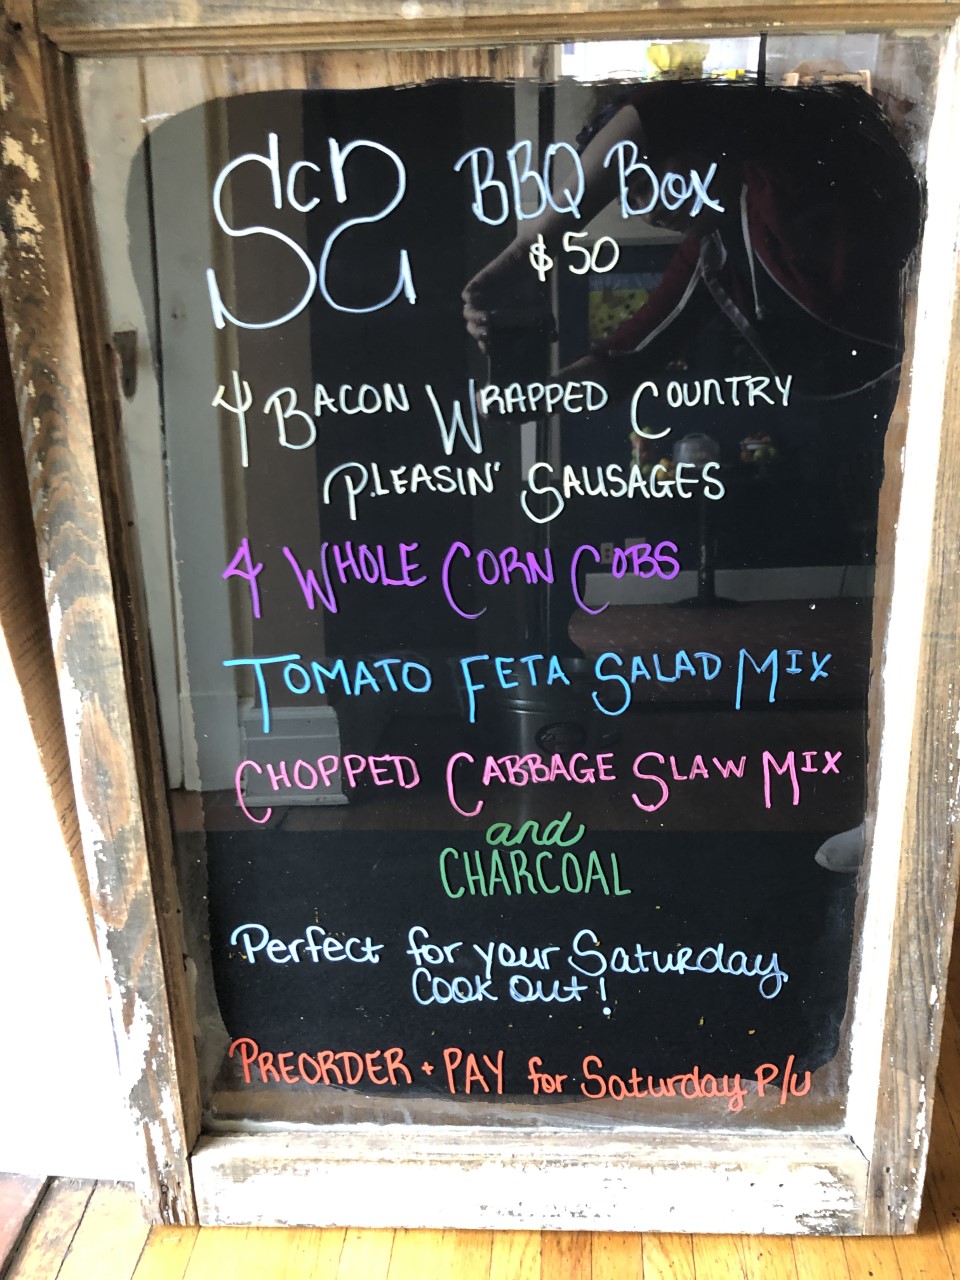 BBQ Box
$50
4 Bacon Wrapped Country
Pleasin' Sausages
4 Whole Corn Cobs
Tomato Feta Salad Mix
Chopped Cabbage Slaw Mix
and
CHARCOAL
Perfect for your Saturday
Cook out!
PREORDER + PAY for Saturday P/U